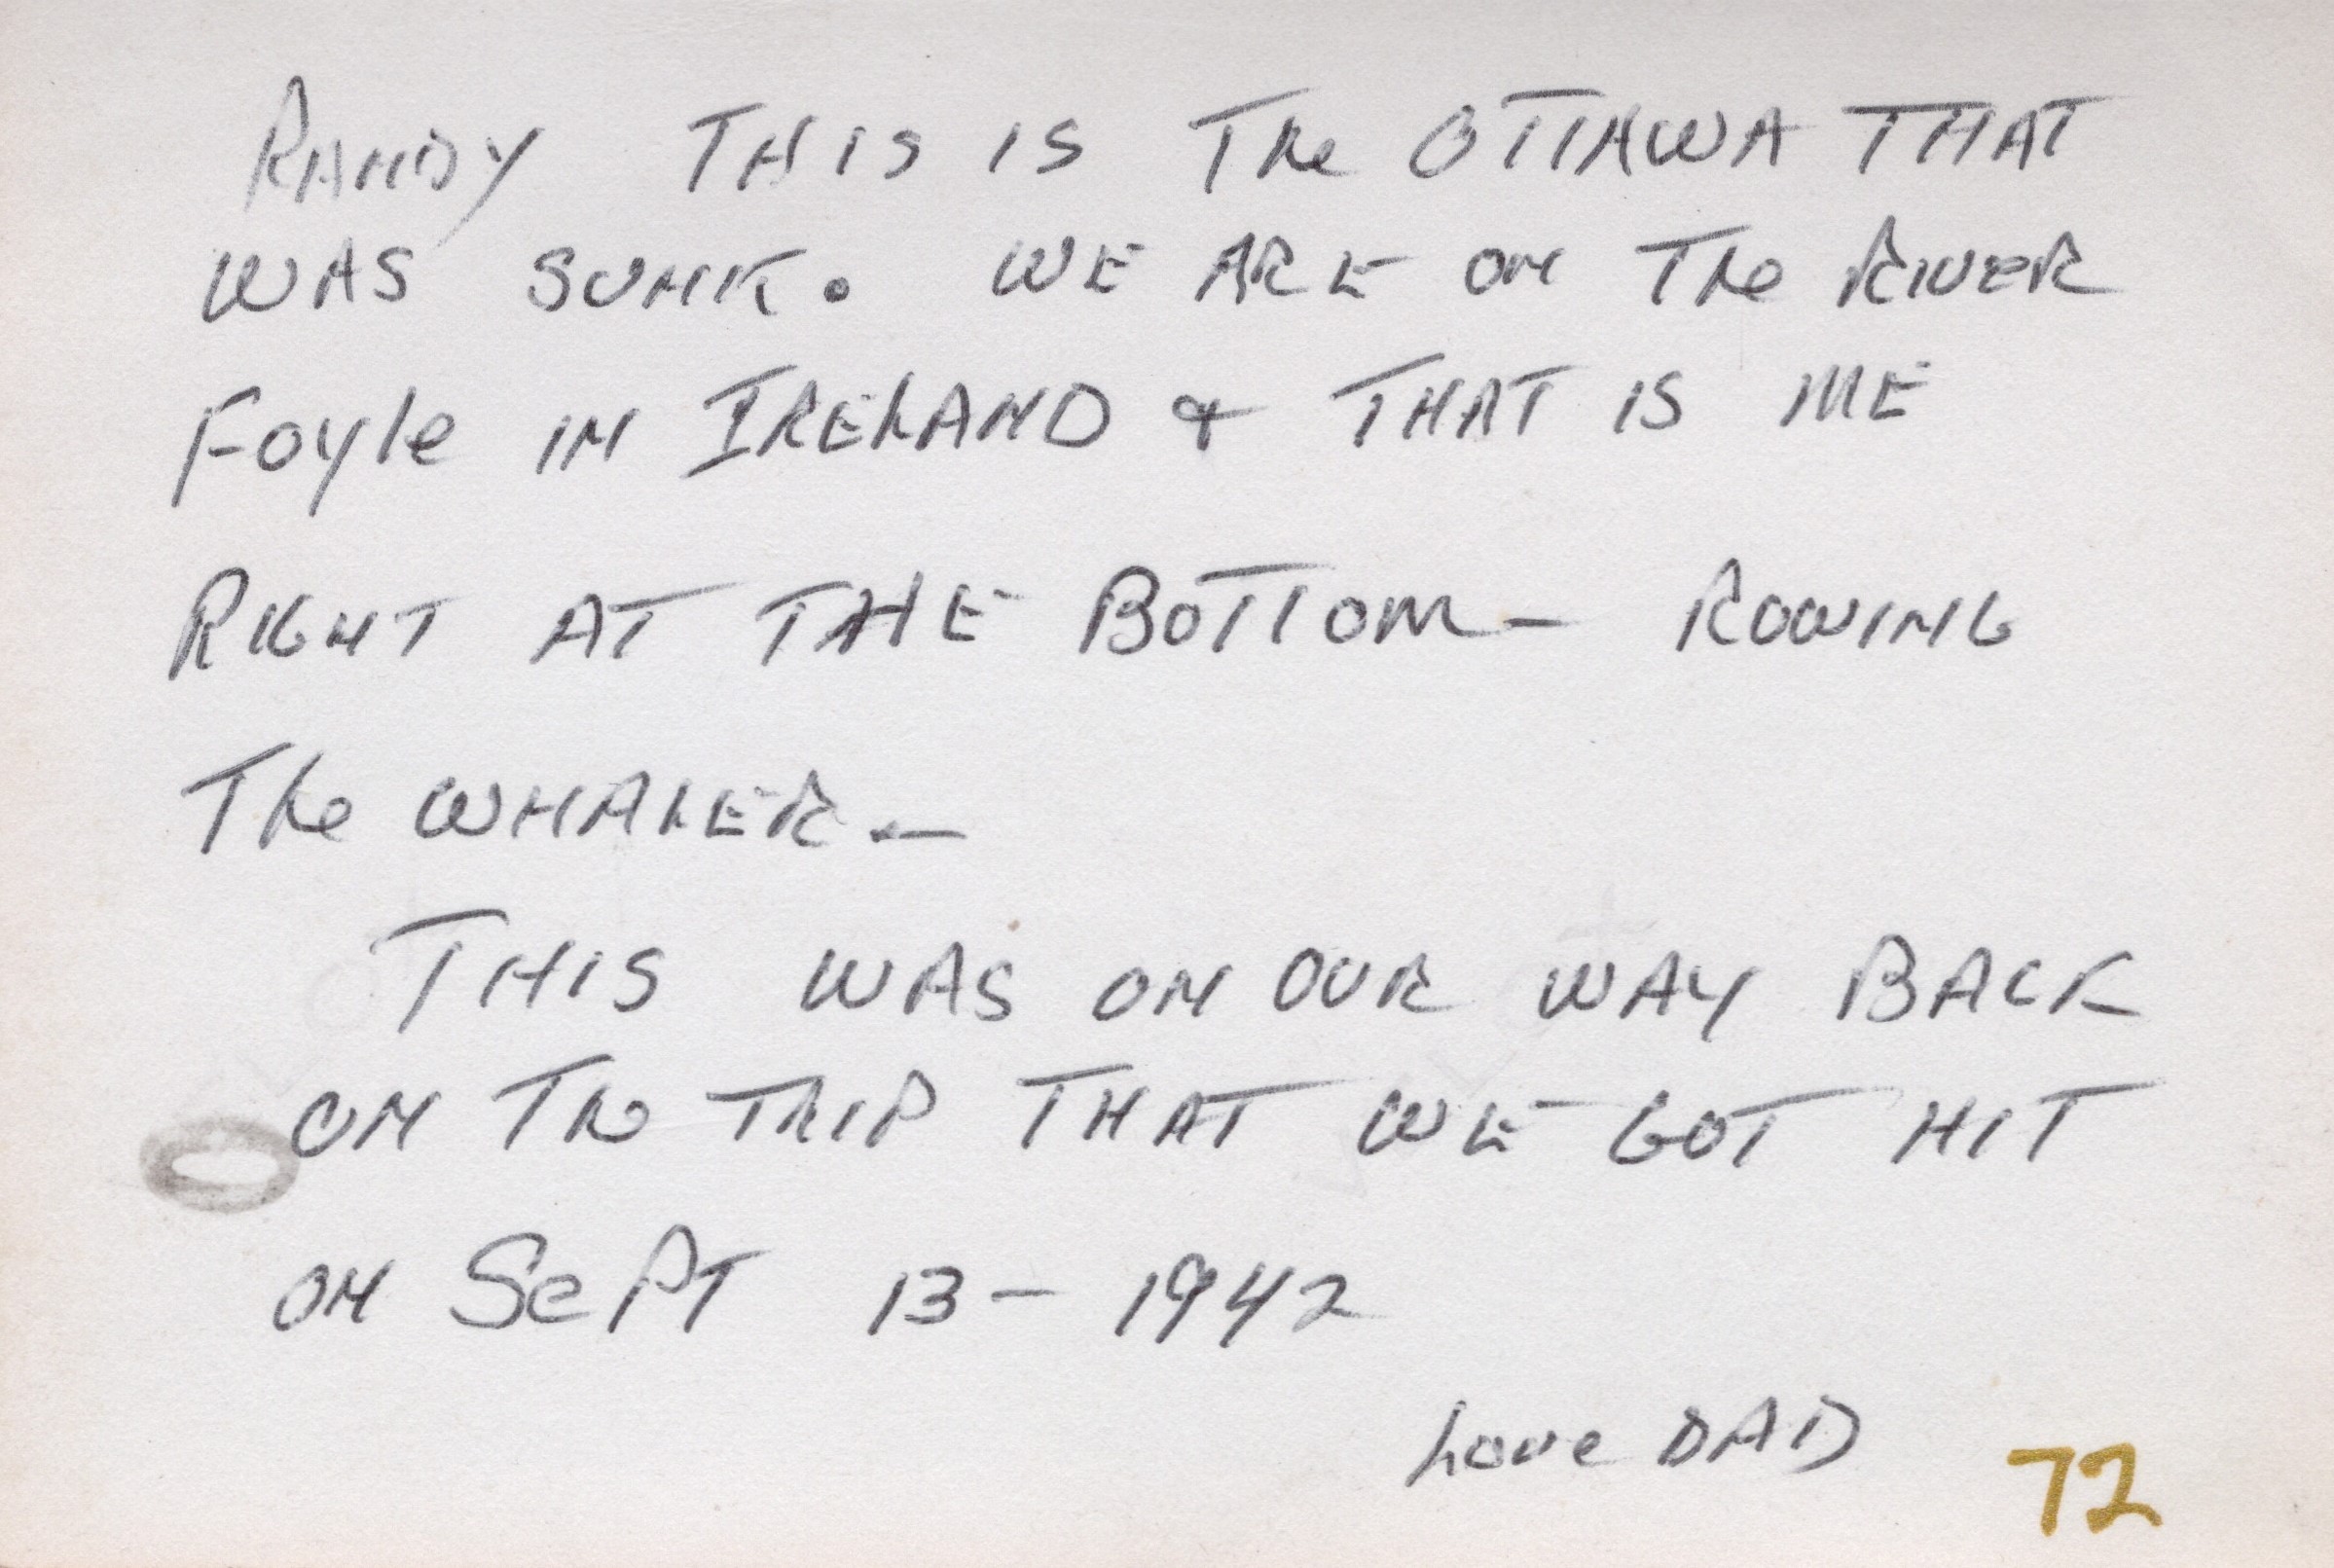 RANDY THIS IS The OTTAWA THAT
WAS SUNK. WE ARE ON The RIVER
Foyle IN IRELAND & THAT IS ME
RIGHT AT THE BOTTOM - ROWING
The WHALER -
THIS WAS ON OUR WAY BACK
ON The TRIP THAT WE GOT HIT
ON SePT 13 - 1942
Love DAD
72